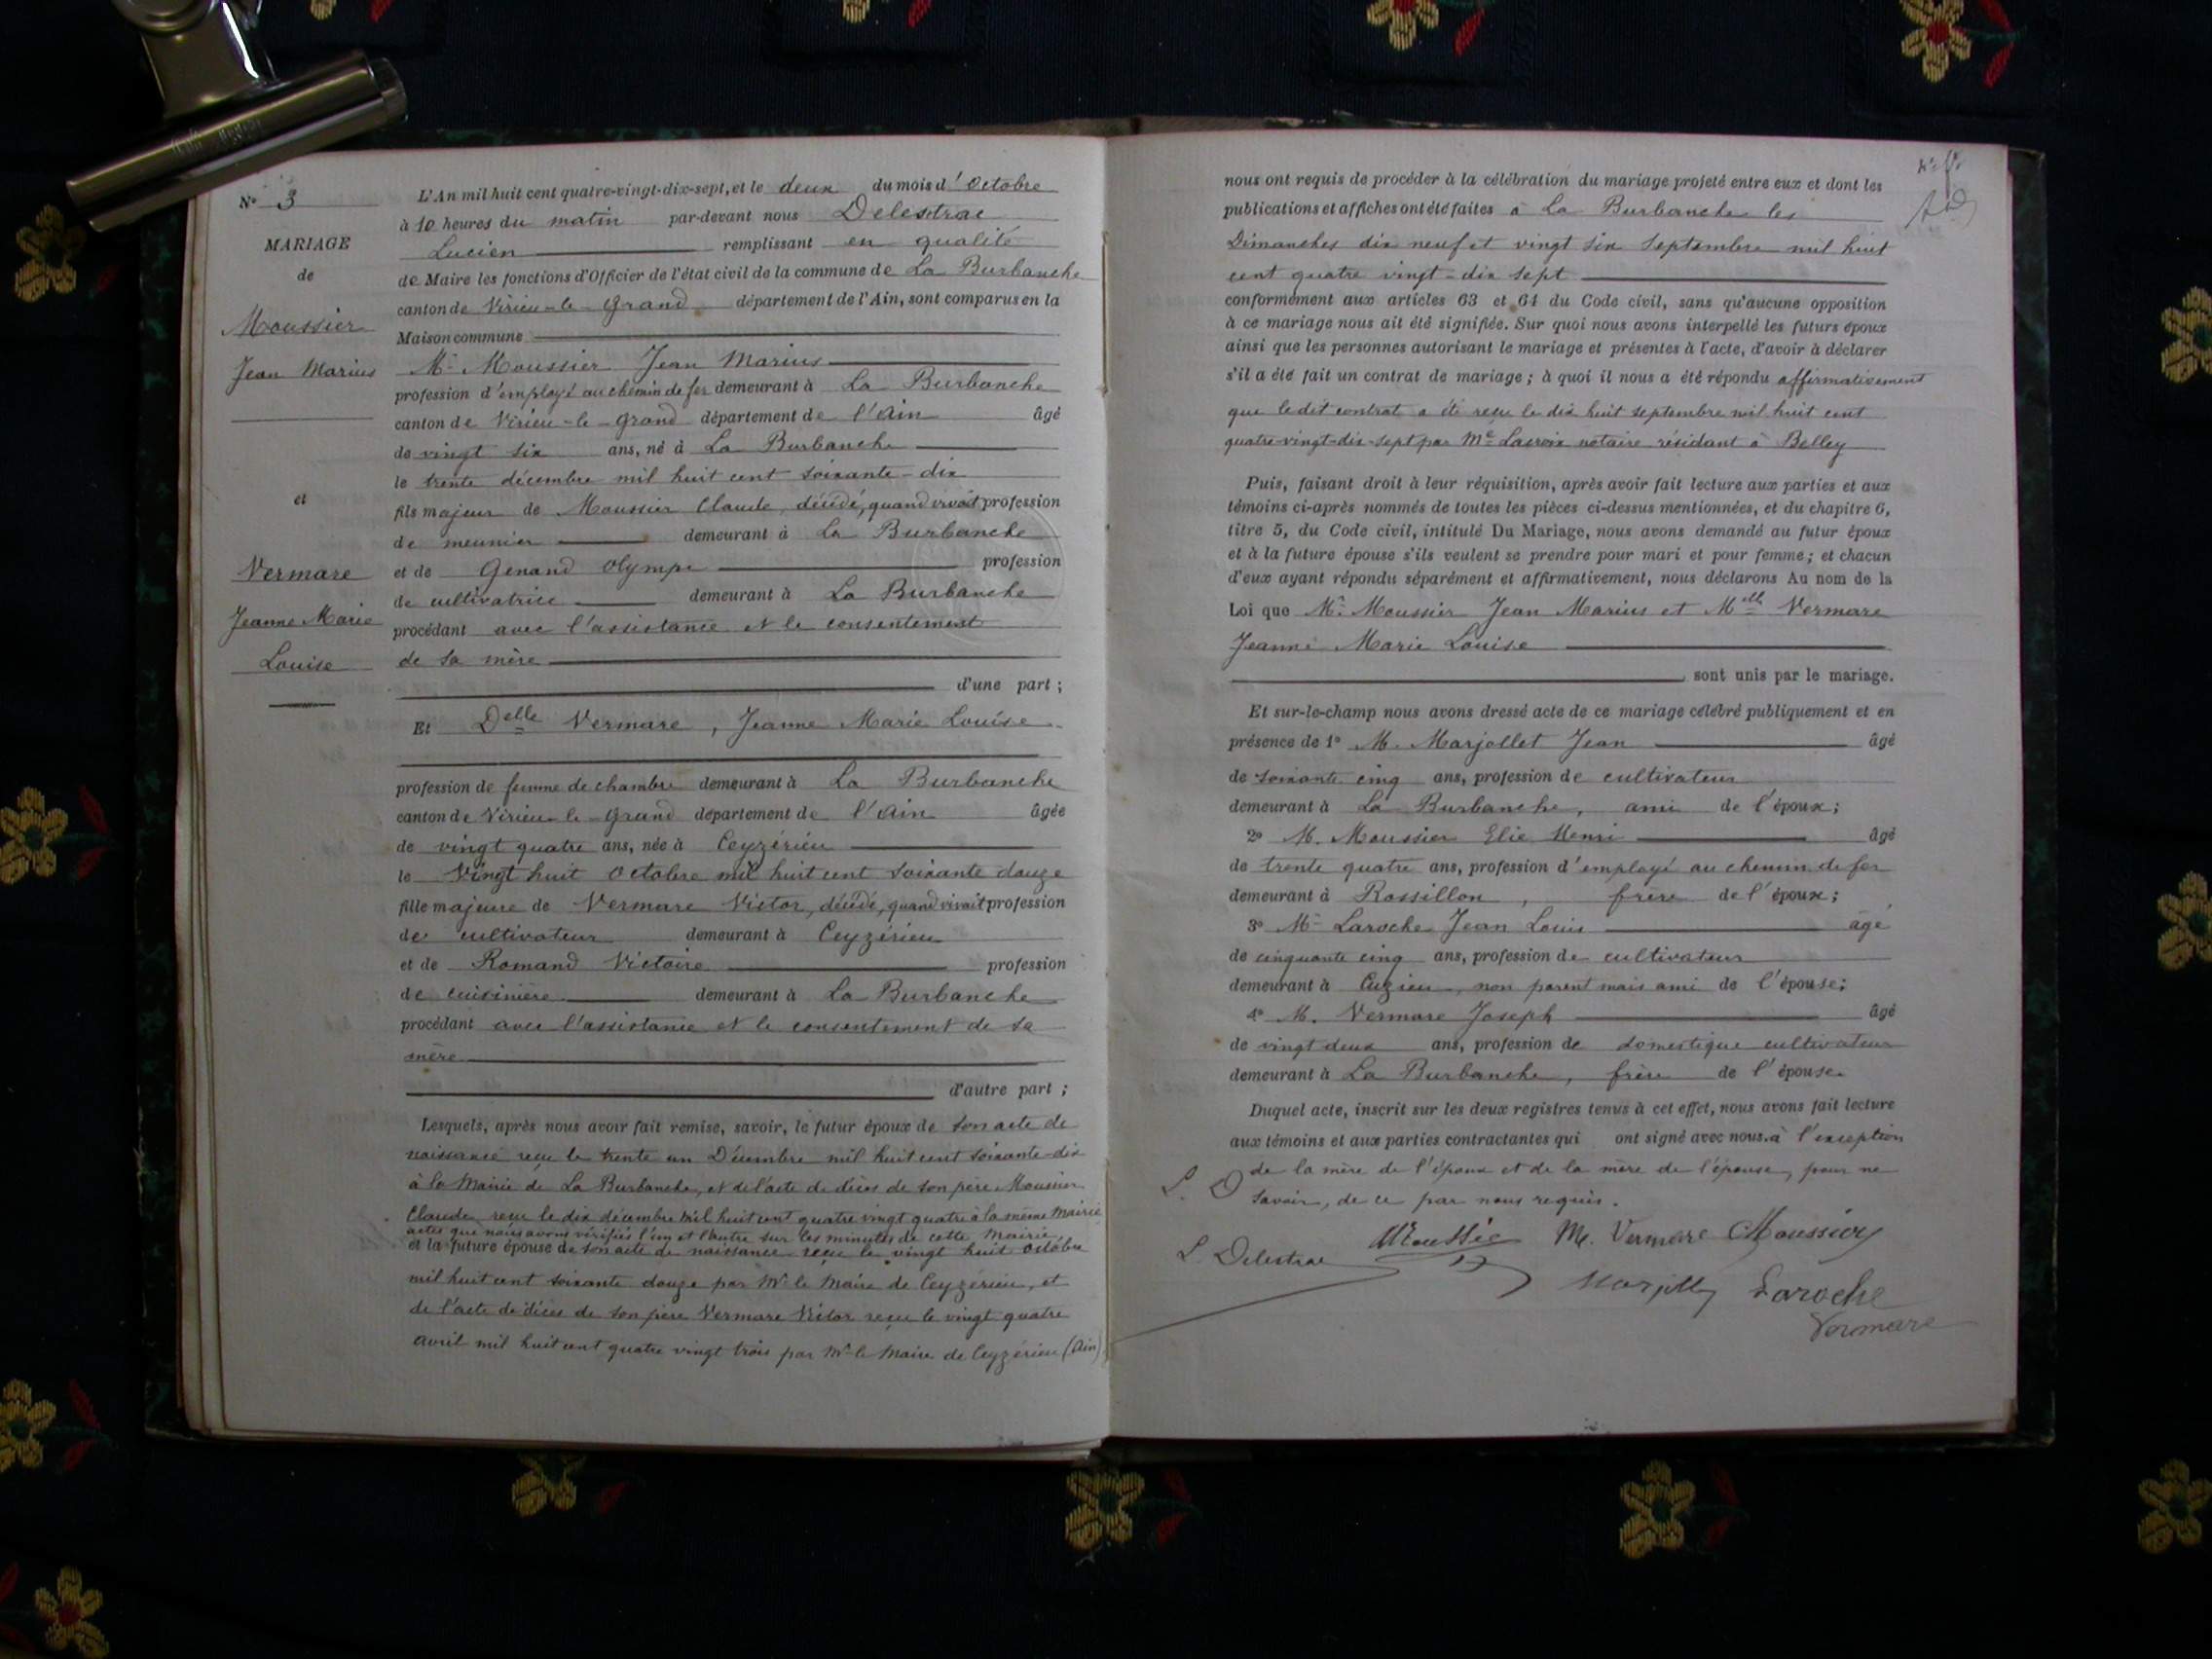 N° 3
MARIAGE
de
Moussier
Jean Marius
et
Vermare
Jeanne Marie
Louise
L'An mil huit cent quatre-vingt-dix-sept, et le deux du mois d'Octobre
à 10 heures du matin par-devant nous Delestrac
Lucien remplissant en qualité
de Maire les fonctions d'Officier de l'état civil de la commune de La Burbanche
canton de Virieu-le-Grand département de l'Ain, sont comparus en la
Maison commune
Mr Moussier Jean Marius
profession d'employé au chemin de fer demeurant à La Burbanche
canton de Virieu-le-Grand département de l'Ain âgé
de vingt six ans, né à La Burbanche
le trente décembre mil huit cent soixante-dix
fils majeur de Moussier Claude, décédé, quand vivait profession
de meunier demeurant à La Burbanche
et de Genand Olympe profession
de cultivatrice demeurant à La Burbanche
procédant avec l'assistance et le consentement
de sa mère
d'une part ;
Et Delle Vermare, Jeanne Marie Louise
profession de femme de chambre demeurant à La Burbanche
canton de Virieu-le-Grand département de l'Ain âgée
de vingt quatre ans, née à Ceyzérieu
le Vingt huit Octobre mil huit cent soixante douze
fille majeure de Vermare Victor, décédé, quand vivait profession
de cultivateur demeurant à Ceyzérieu
et de Romand Victoire profession
de cuisinière demeurant à La Burbanche
procédant avec l'assistance et le consentement de sa
mère
d'autre part ;
Lesquels, après nous avoir fait remise, savoir, le futur époux de son acte de
naissance reçu le trente un Décembre mil huit cent soixante-dix
à la Mairie de La Burbanche, et de l'acte de décès de son père Moussier
Claude reçu le dix décembre mil huit cent quatre vingt quatre à la même Mairie
actes que nous avons vérifiés l'un et l'autre sur les minutes de cette Mairie,
et la future épouse de son acte de naissance reçu le vingt huit Octobre
mil huit cent soixante douze par Mr le Maire de Ceyzérieu, et
de l'acte de décès de son père Vermare Victor reçu le vingt quatre
avril mil huit cent quatre vingt trois par Mr le Maire de Ceyzérieu (Ain)
nous ont requis de procéder à la célébration du mariage projeté entre eux et dont les
publications et affiches ont été faites à La Burbanche les
Dimanches dix neuf et vingt six Septembre mil huit
cent quatre vingt-dix sept
conformément aux articles 63 et 64 du Code civil, sans qu'aucune opposition
à ce mariage nous ait été signifiée. Sur quoi nous avons interpellé les futurs époux
ainsi que les personnes autorisant le mariage et présentes à l'acte, d'avoir à déclarer
s'il a été fait un contrat de mariage ; à quoi il nous a été répondu affirmativement
que le dit contrat a été reçu le dix huit septembre mil huit cent
quatre-vingt-dix-sept par Me Lacroix notaire résidant à Belley
Puis, faisant droit à leur réquisition, après avoir fait lecture aux parties et aux
témoins ci-après nommés de toutes les pièces ci-dessus mentionnées, et du chapitre 6,
titre 5, du Code civil, intitulé Du Mariage, nous avons demandé au futur époux
et à la future épouse s'ils veulent se prendre pour mari et pour femme ; et chacun
d'eux ayant répondu séparément et affirmativement, nous déclarons Au nom de la
Loi que Mr Moussier Jean Marius et Melle Vermare
Jeanne Marie Louise
sont unis par le mariage.
Et sur-le-champ nous avons dressé acte de ce mariage célébré publiquement et en
présence de 1° M. Marjollet Jean âgé
de soixante cinq ans, profession de cultivateur
demeurant à La Burbanche, ami de l'époux ;
2° M. Moussier Elie Henri âgé
de trente quatre ans, profession d'employé au chemin de fer
demeurant à Rossillon, frère de l'époux ;
3° Mr Laroche Jean Louis âgé
de cinquante cinq ans, profession de cultivateur
demeurant à Cuzieu, non parent mais ami de l'épouse ;
4° M. Vermare Joseph âgé
de vingt deux ans, profession de domestique cultivateur
demeurant à La Burbanche, frère de l'épouse
Duquel acte, inscrit sur les deux registres tenus à cet effet, nous avons fait lecture
aux témoins et aux parties contractantes qui ont signé avec nous, à l'exception
L. D de la mère de l'époux et de la mère de l'épouse, pour ne
savoir, de ce par nous requis.
Moussier M. Vermare Moussier
L. Delestrac
Marjollet Laroche
Vermare